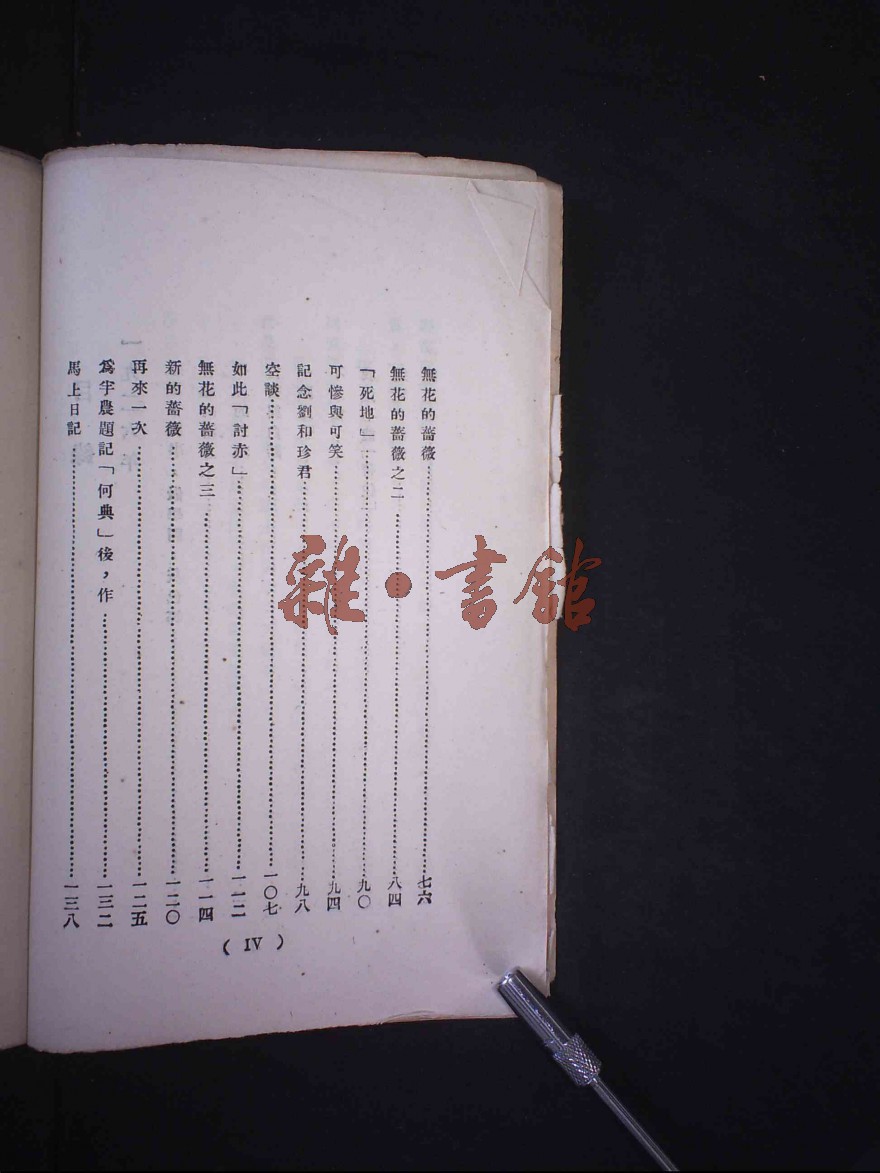 無花的薔薇……七六
無花的薔薇之二……八四
「死地」……九〇
可慘與可笑……九四
記念劉和珍君……九八
空談……一〇七
如此「討赤」……一一二
無花的薔薇之三……一一四
新的薔薇……一二〇
再來一次……一二五
爲半農題記「何典」後，作……一三二
馬上日記……一三八
( IV )
雜•書館